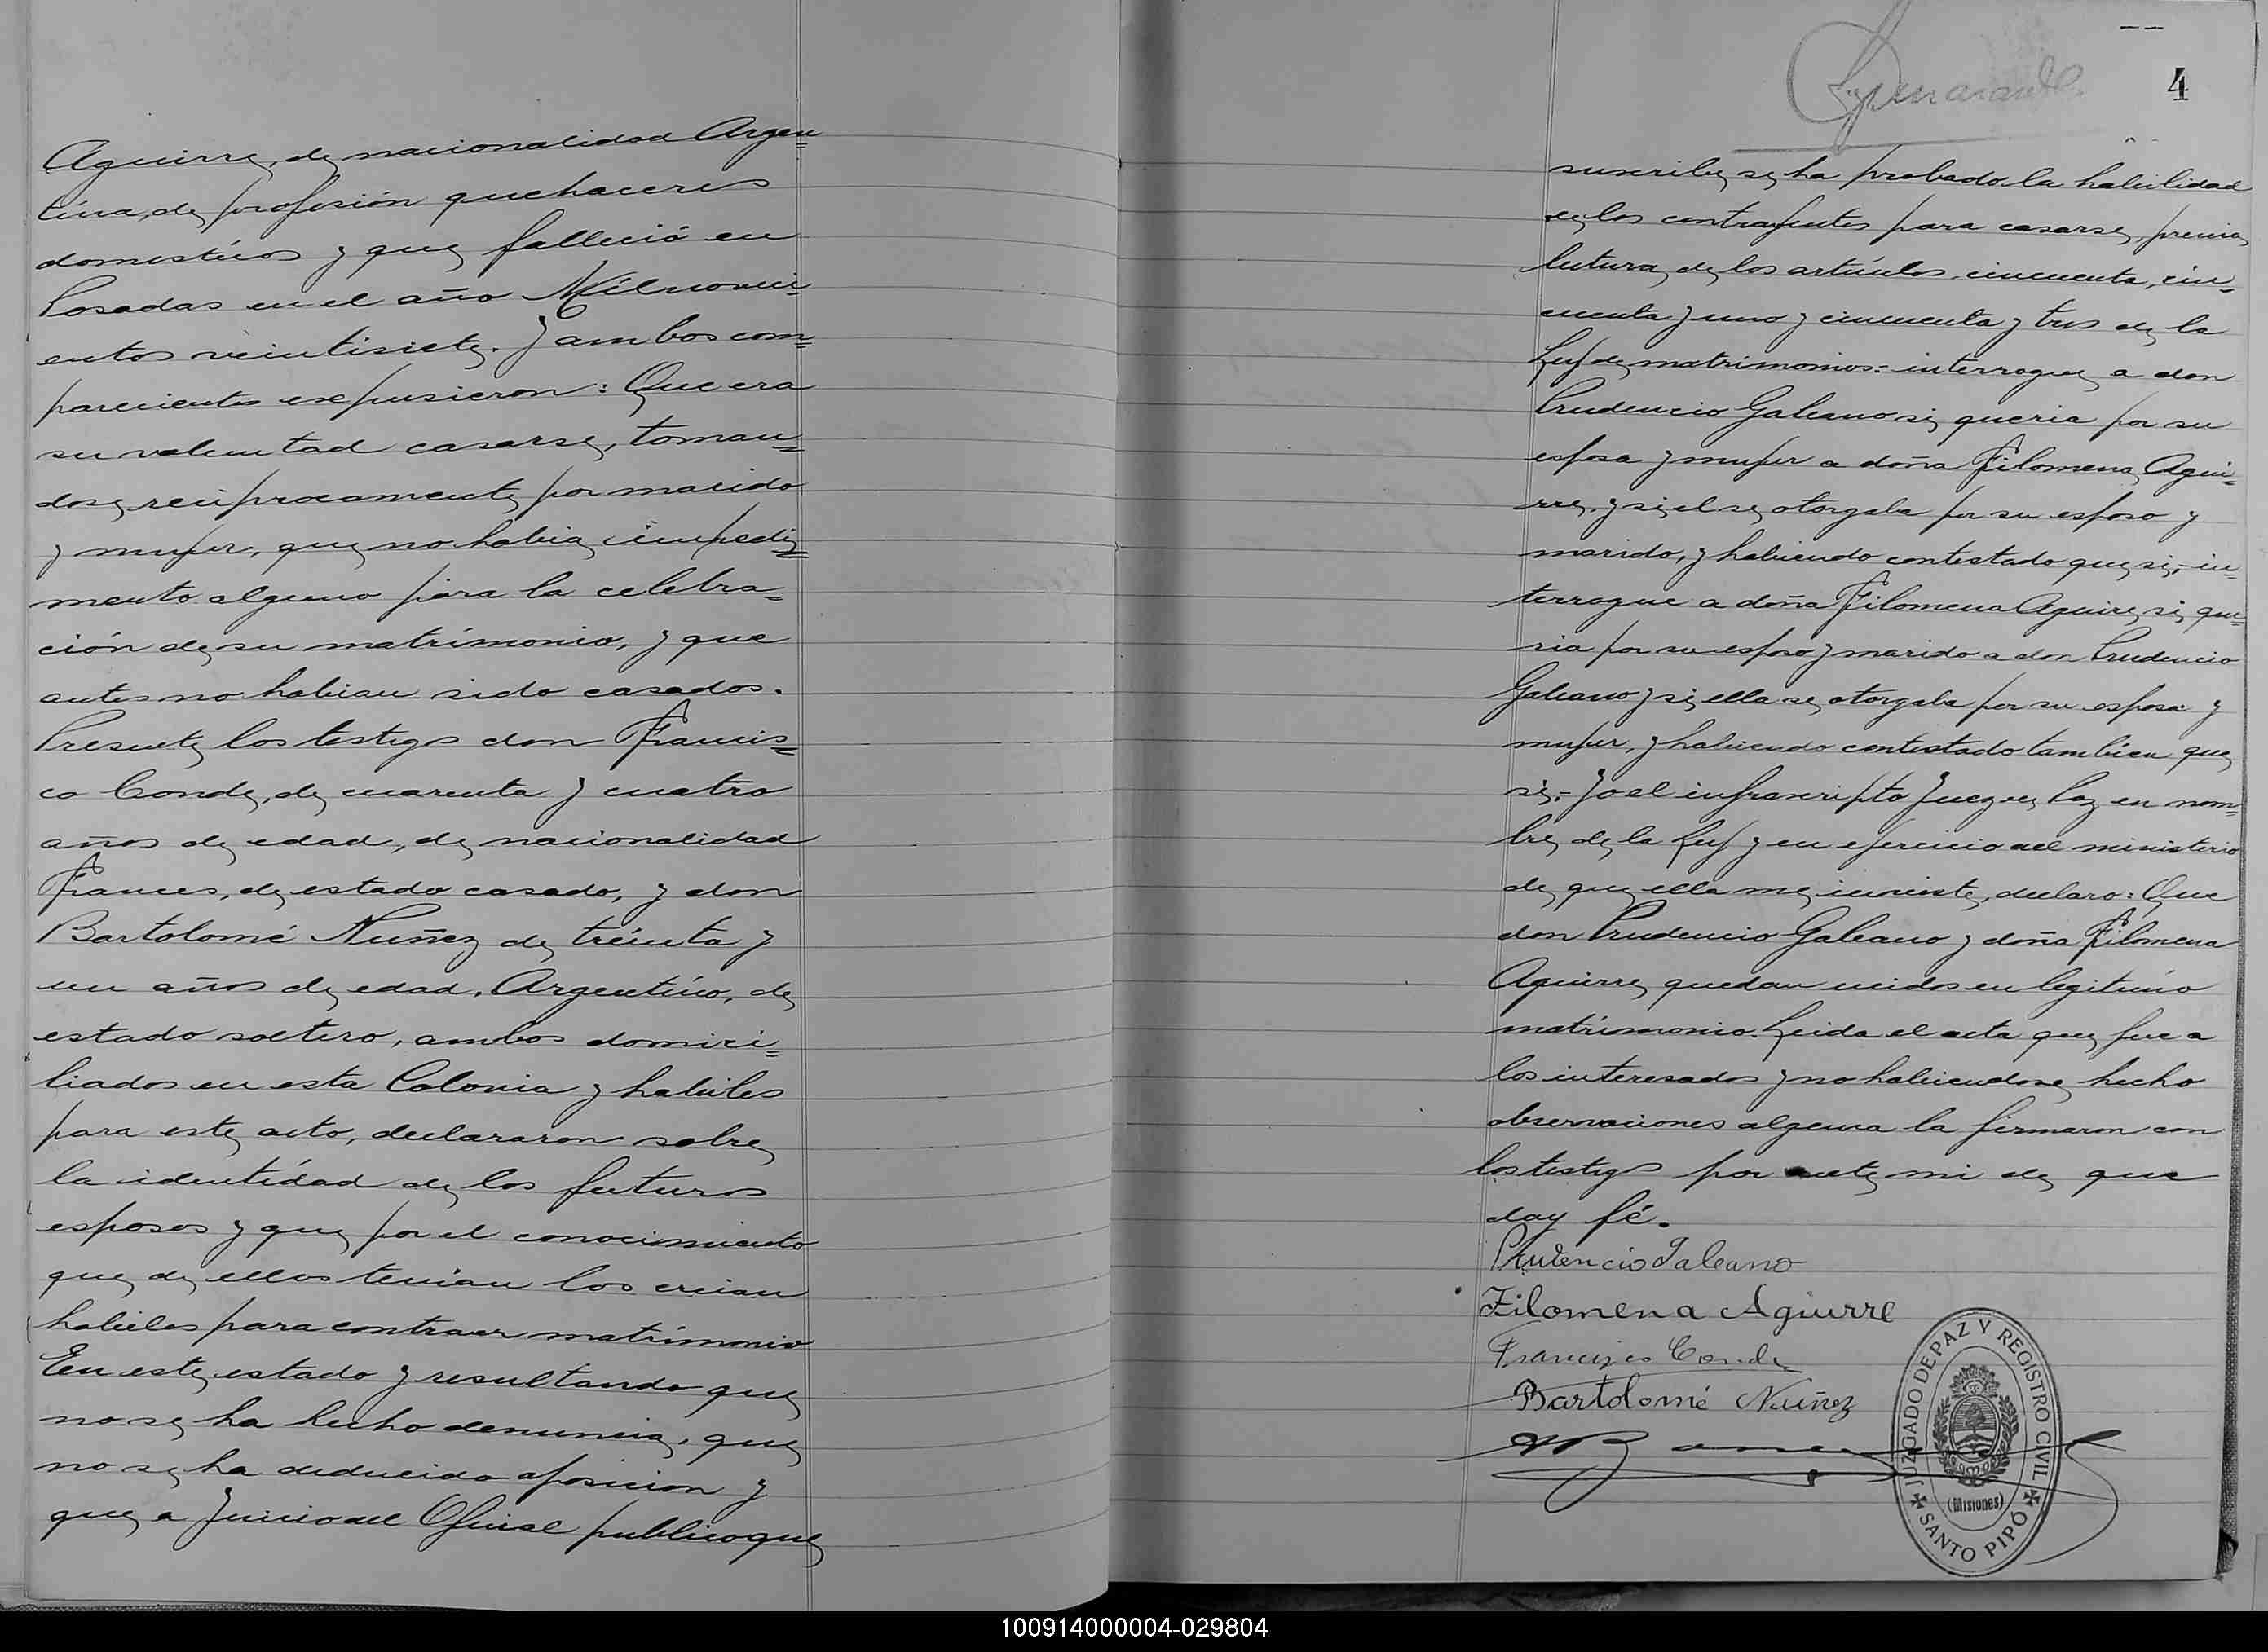 Aguirre, de nacionalidad Argen=
tina, de profesión quehaceres
domesticos y que falleció en
Posadas en el año Milnoveci=
entos veintisiete. Y ambos com=
parecientes expusieron: Que era
su voluntad casarse, toman=
dose reciprocamente por marido
y mujer, que no habia impedi=
mento alguno para la celebra=
ción de su matrimonio, y que
antes no habian sido casados.
Presente los testigos don Francis=
co Conde, de cuarenta y cuatro
años de edad, de nacionalidad
Frances, de estado casado, y don
Bartolomé Nuñez de treinta y
un años de edad, Argentino, de
estado soltero, ambos domici=
liados en esta Colonia y habiles
para este acto, declararon sobre
la identidad de los futuros
esposos y que por el conocimiento
que de ellos tenian los creian
habiles para contraer matrimonio
En este estado y resultando que
no se ha hecho denuncia, que
no se ha deducido oposicion y
que a Juicio del Oficial publico que
4
suscribe se ha probado la habilidad
de los contrayentes para casarse, previa
lectura de los artículos cincuenta, cin=
cuenta y uno y cincuenta y tres de la
Ley de matrimonios:- interrogue a don
Prudencio Galeano si queria por su
esposa y mujer a doña Filomena Agui=
rre, y si el se otorgaba por su esposo y
marido, y habiendo contestado que si,- in=
terrogue a doña Filomena Aguire si que=
ria por su esposo y marido a don Prudencio
Galeano y si ella se otorgaba por su esposa y
mujer, y habiendo contestado tambien que
si.- Yo el infrascripto Juez de Paz en nom=
bre de la Ley y en ejercicio del ministerio
de que ella me inviste, declaro: Que
don Prudencio Galeano y doña Filomena
Aguirre quedan unidos en legitimo
matrimonio. Leida el acta que fue a
los interesados y no habiendose hecho
observaciones alguna la firmaron con
los testigos por ante mi de que
doy fé.
Prudencio Galeano
Filomena Aguirre
Francisco Conde
Bartolomé Nuñez
JUZGADO DE PAZ Y REGISTRO CIVIL
(Misiones)
SANTO PIPÓ
100914000004-029804